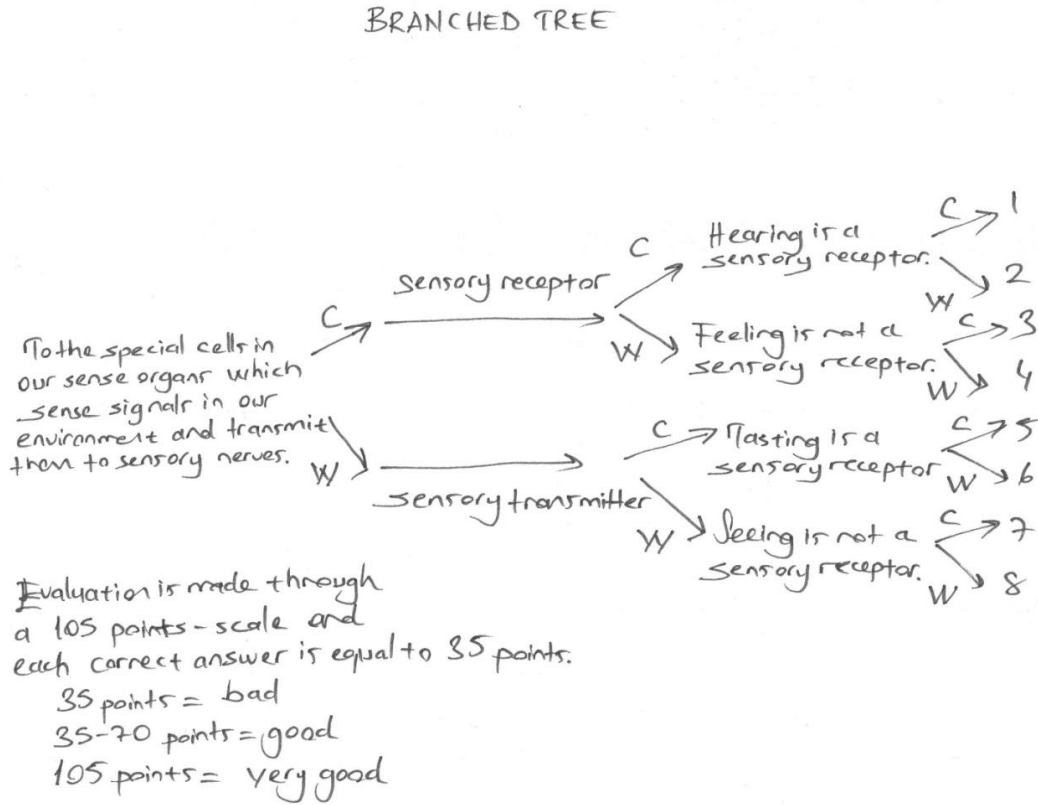 BRANCHED TREE
To the special cells in
our sense organs which
sense signals in our
environment and transmit
them to sensory nerves.
C
sensory receptor
W
sensory transmitter
C
Hearing is a
sensory receptor.
W
Feeling is not a
sensory receptor.
C
Tasting is a
sensory receptor
W
Seeing is not a
sensory receptor.
C
1
W
2
C
3
W
4
C
5
W
6
C
7
W
8
Evaluation is made through
a 105 points-scale and
each correct answer is equal to 35 points.
35 points = bad
35-70 points = good
105 points = very good